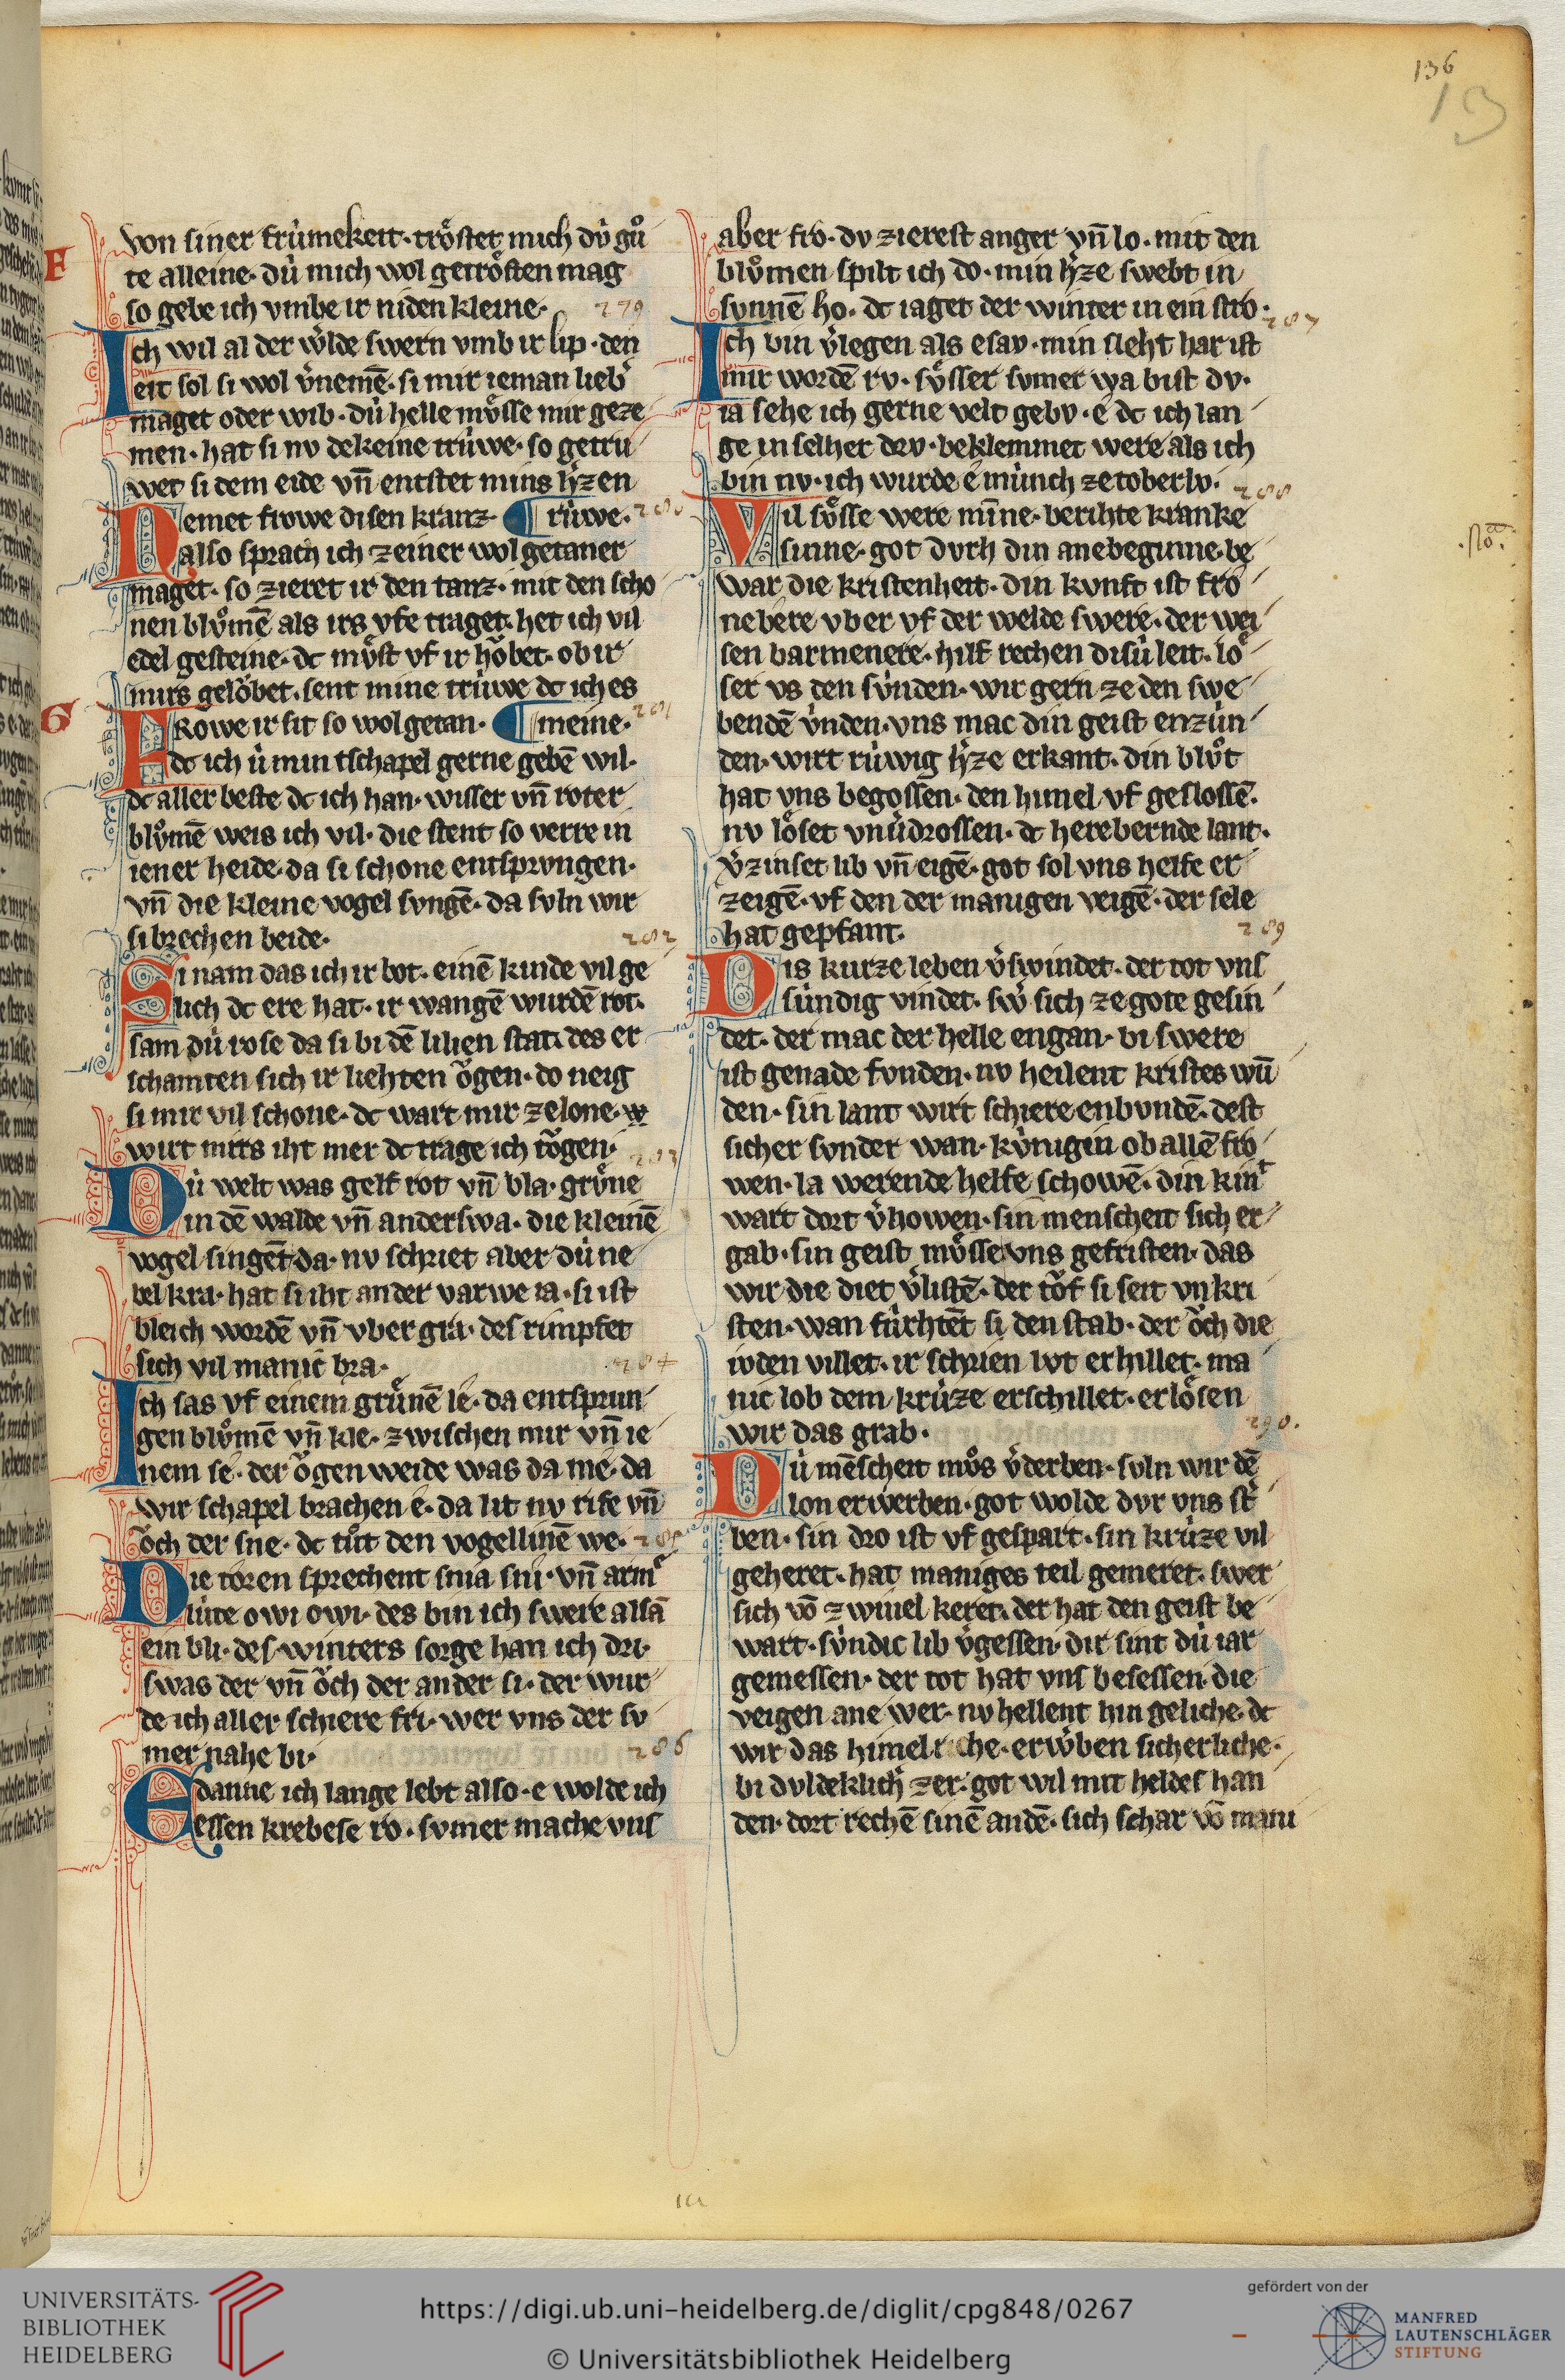 136
13
von siner frúmekeit· trôstet mich dú gů
te alleine· dú mich wol getrôsten mag
so gebe ich vmbe ir niden kleine·
279
Ich wil al der w̓lde swern vmb ir lip· den
eit sol si wol v̓nemē· si mir ieman lieb̓
maget oder wib· dú helle mv̊sse mir geze
men· hat si nv dekeine trúwe· so getru
wet si dem eide vn̄ entstet mins h̓zen
Nemet frowe disen kranz· ¶ trúwe·
280
also sprach ich zeiner wol getaner
maget· so zieret ir den tanz· mit den scho
nen blv̊mē als irs vfe traget· het ich vil
edel gesteine· dc mv̊st vf ir hỏbet· ob ir
mirs gelỏbet· sent mine trúwe dc ich es
Frowe ir sit so wol getan· ¶ meine·
281
dc ich ú min tschapel gerne gebē wil·
dc aller beste dc ich han· wisser vn̄ roter
blv̊mē weis ich vil· die stent so verre in
iener heide· da si schone entsprvngen·
vn̄ die kleine vogel svngē· da svln wir
si brechen beide·
282
Si nam das ich ir bot· einē kinde vil ge
lich dc ere hat· ir wangē wurdē rot·
sam dú rose da si bi dē lilien stat· des er
schamten sich ir liehten ỏgen· do neig
si mir vil schone· dc wart mir zelone· w
wirt mirs iht mer dc trage ich tỏgen·
283
Dú welt was gelf rot vn̄ bla· grv̊ne
in dē walde vn̄ anderswa· die kleinē
vogel singēt da· nv schriet aber dú ne
bel kra· hat si iht ander varwe ia· si ist
bleich wordē vn̄ vber gra· des rimpfet
sich vil manic bra·
284
Ich sas vf einem grůnē le· da entsprun
gen blv̊mē vn̄ kle· zwischen mir vn̄ ie
nem se· der ỏgen weide was da me· da
wir schapel brachen e· da lit nv rife vn̄
ỏch der sne· dc tůt den vogellinē we·
285
Die toren sprechent snia sni· vn̄ arm̓
lúte owi owi· des bin ich swere alsā
ein bli· des winters sorge han ich dri·
swas der vn̄ ỏch der ander si· der wur
de ich aller schiere fri· wer vns der sv
mer nahe bi·
286
E danne ich lange lebt also· e wolde ich
essen krebese ro· svmer mache vns
aber fro· dv zierest anger vn̄ lo· mit den
blv̊men spilt ich do· min h̓ze swebt in
svnnē ho· dc iaget der winter in ein stro·
287
Ich bin v̓legen als esav· min sleht har ist
mir wordē rv· sv̊sser svmer wa bist dv·
ia sehe ich gerne velt gebv· e dc ich lan
ge in selher drv· beklemmet were als ich
bin nv· ich wurde e múnch ze toberlv·
288
Vil sv̊sse were mīne· berihte kranke
sinne· got dvrh din anebeginne· be
war die kristenheit· din kvnft ist fro
nebere vber vf der welde swere· der wei
sen barmenere· hilf rechen disú leit· lo
ser vs den súnden· wir gern ze den swe
bendē v́nden· vns mac din geist enzún
den· wirt rúwig h̓ze erkant· din blůt
hat vns begossen· den himel vf geslossē·
nv lôset vnv̓drossen· dc herebernde lant·
v̓zinset lib vn̄ eigē· got sol vns helfe er
zeigē· vf den der manigen veigē· der sele
hat gepfant·
289
Dis kurze leben v̓swindet· der tot vns
súndig vindet· sw̓ sich ze gote gesin
det· der mac der helle engan· bi swere
ist genade fvnden· nv heilent kristes wū
den· sin lant wirt schiere enbvndē· dest
sicher svnder wan· kv́nigin ob allē fro
wen· la werende helfe schowē· din kint
wart dort v̓howen· sin menscheit sich er
gab· sin geist mv̊sse vns gefristen· das
wir die diet v̓listē· der tỏf si seit vnkri
sten· wan fúrhtēt si den stab· der ỏch die
ivden villet· ir schrien lvt erhillet· ma
nic lob dem krúze erschillet· erlôsen
wir das grab·
290·
Dú mēscheit mv̊s v̓derben· svln wir dē
lon erwerben· got wolde dvr vns st̓
ben· sin dro ist vf gespart· sin krúze vil
geheret· hat maniges teil gemeret· swer
sich vō zwiuel keret· der hat den geist be
wart· súndic lib v̓gessen· dir sint dú iar
gemessen· der tot hat vns besessen· die
veigen ane wer· nv hellent hin geliche· dc
wir das himelriche· erw̓ben sicherliche·
bi dvldeklich̓ zer· got wil mit heldes han
den· dort rechē sinē andē· sich schar vō mani
F
G
·No·
UNIVERSITÄTS-
BIBLIOTHEK
HEIDELBERG
https://digi.ub.uni-heidelberg.de/diglit/cpg848/0267
© Universitätsbibliothek Heidelberg
gefördert von der
MANFRED
LAUTENSCHLÄGER
STIFTUNG